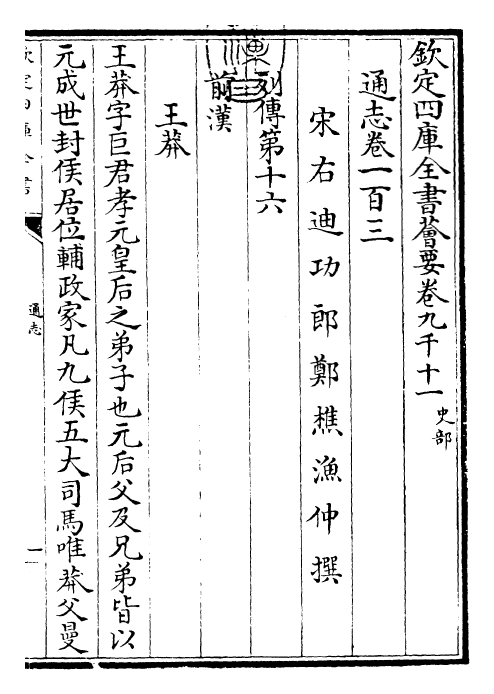 欽定四庫全書薈要卷九千十一
史部
通志卷一百三
宋右迪功郎鄭樵漁仲撰
列傳第十六
前漢
王莽
王莽字巨君孝元皇后之弟子也元后父及兄弟皆以
元成世封侯居位輔政家凡九侯五大司馬唯莽父曼
通志
一